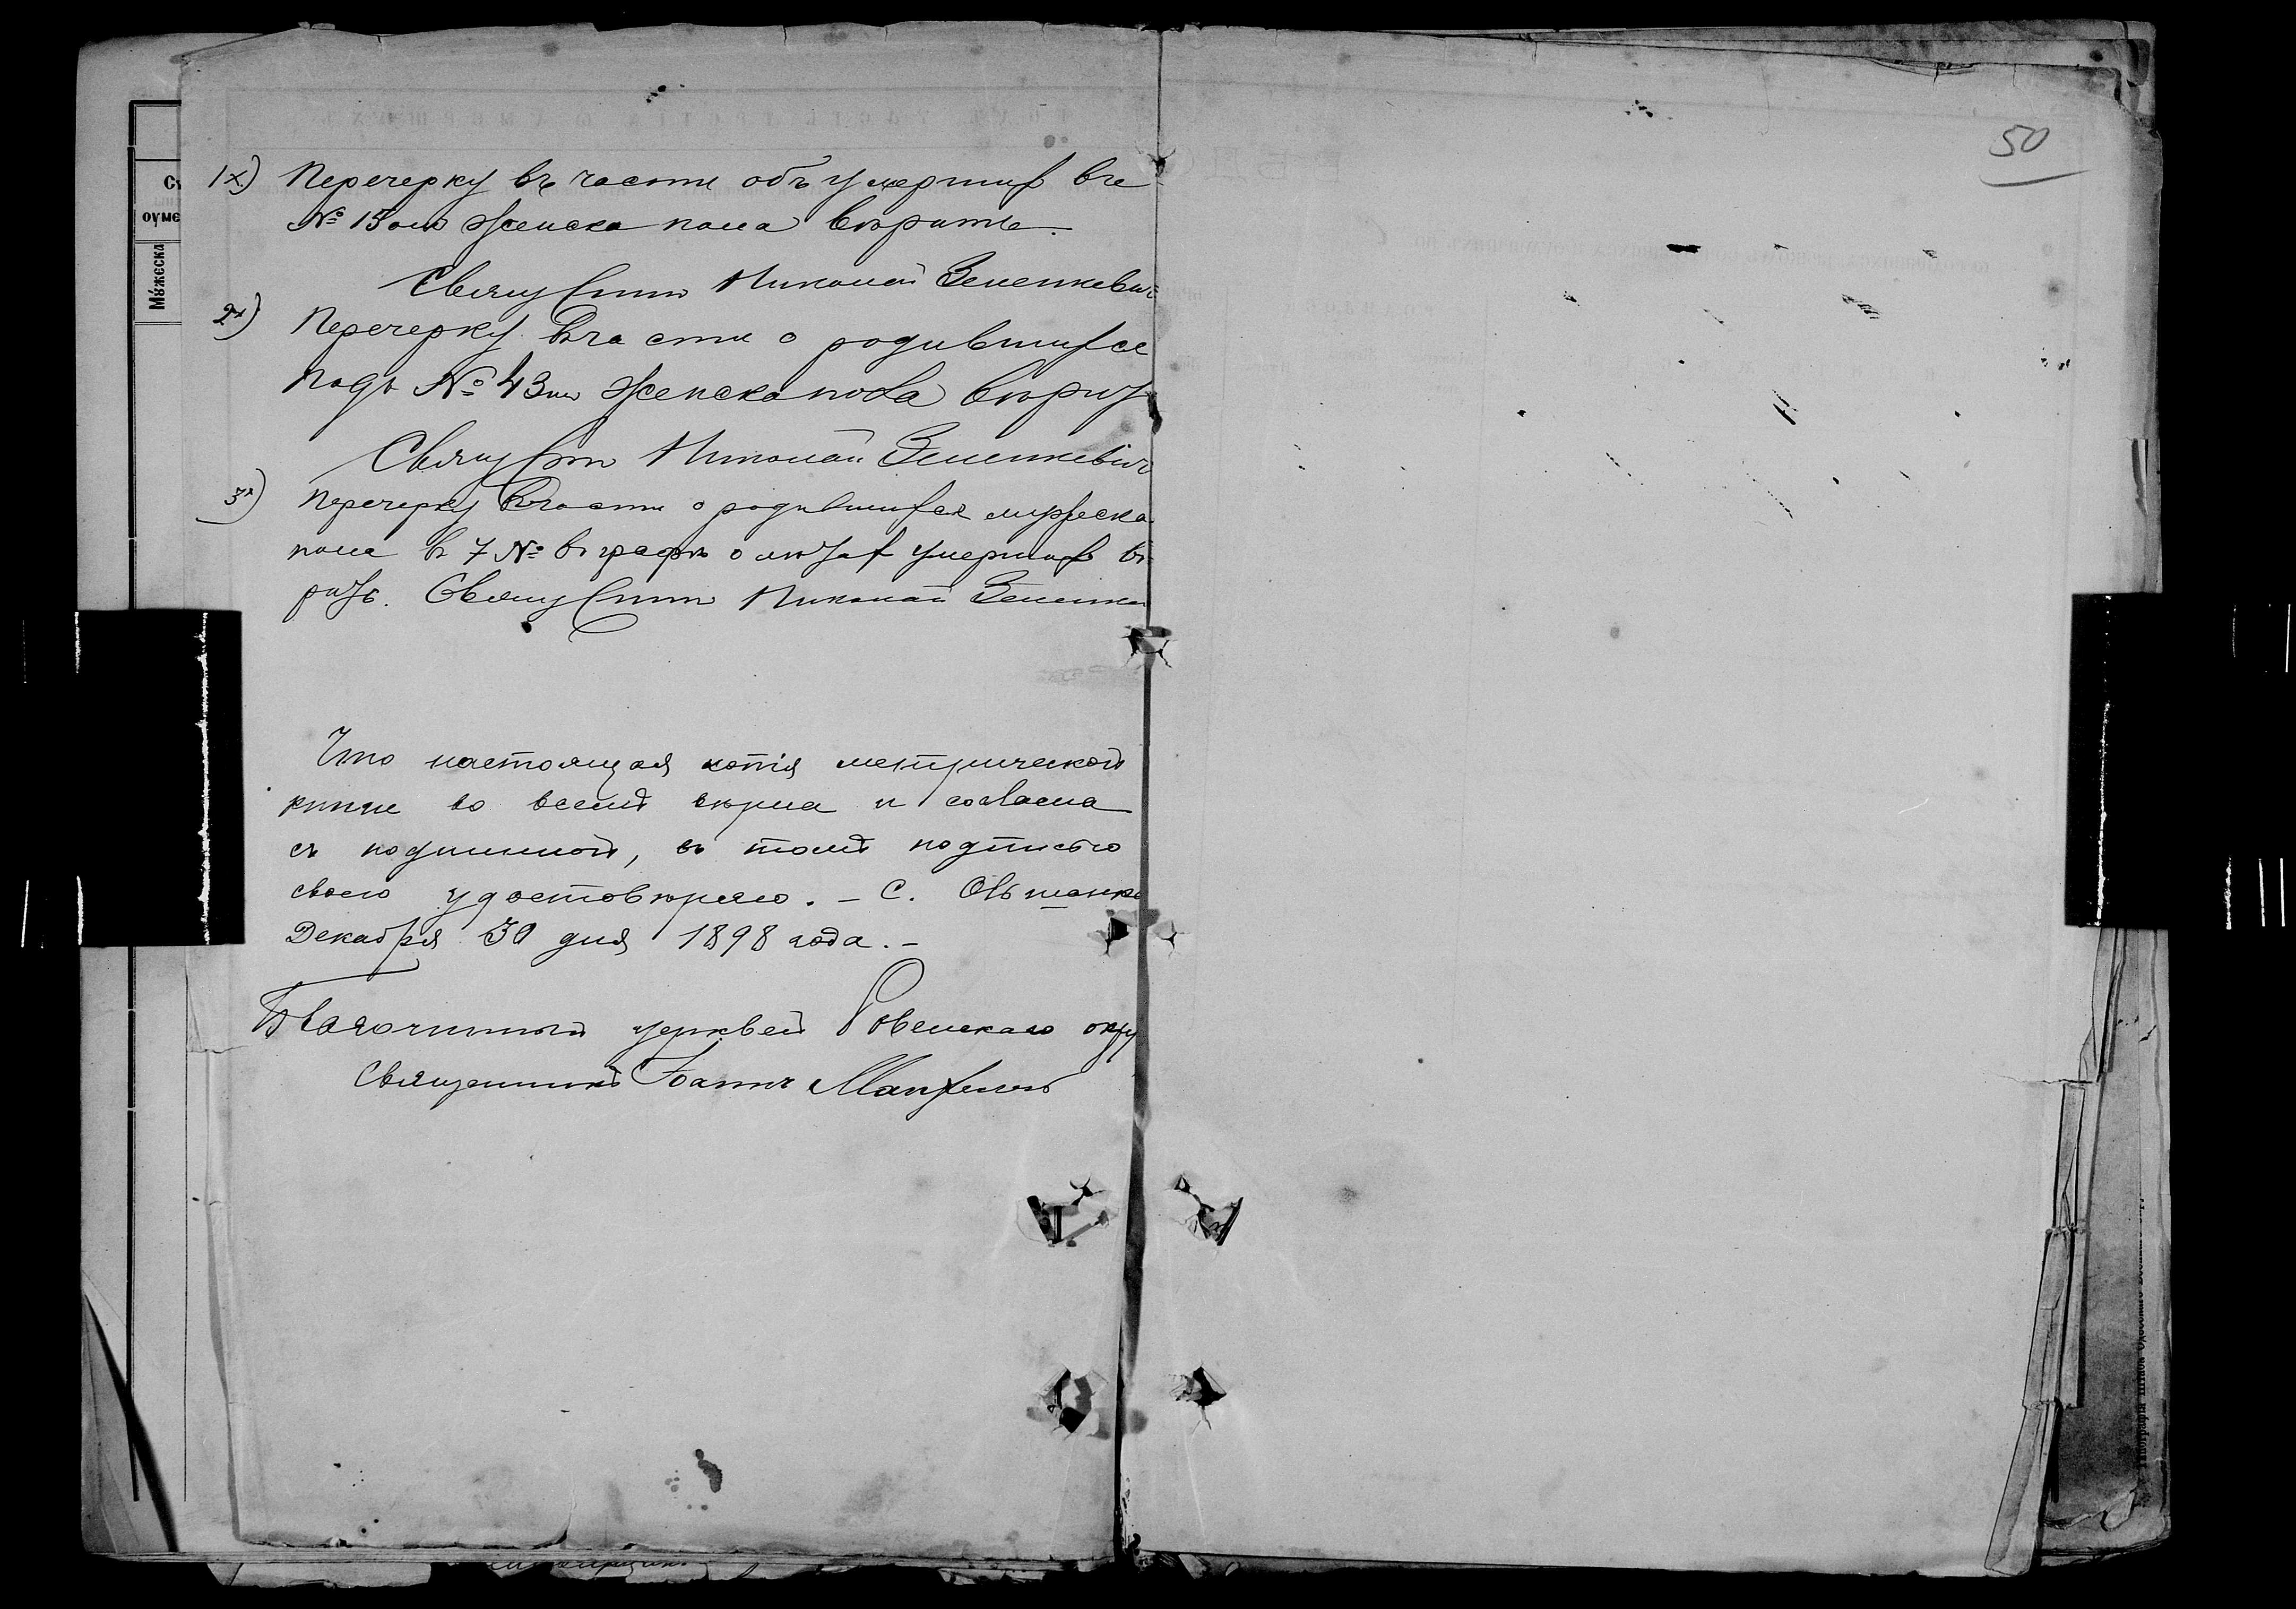 50
1х) Перечерку въ части объ умершихъ въ
№ 15омъ женска пола вѣрить.
Священникъ Николай Зеленкевич
2х) Перечерку въ части о родившихся
подъ № 43мъ женска пола вѣрить
Священникъ Николай Зеленкевич
3х) Перечерку въ части о родившихся мужеска
пола въ 7 № въ графѣ умершихъ вѣ-
рить. Священникъ Николай Зеленке
Что настоящая копія метрической
книги во всемъ вѣрна и согласна
съ подлинной, въ томъ подписью
своею удостовѣряю. – С. Ольшанка
Декабря 30 дня 1898 года. –
Благочинный церквей Ровенскаго окру
Священникъ Іоаннъ
Мꙋжеска